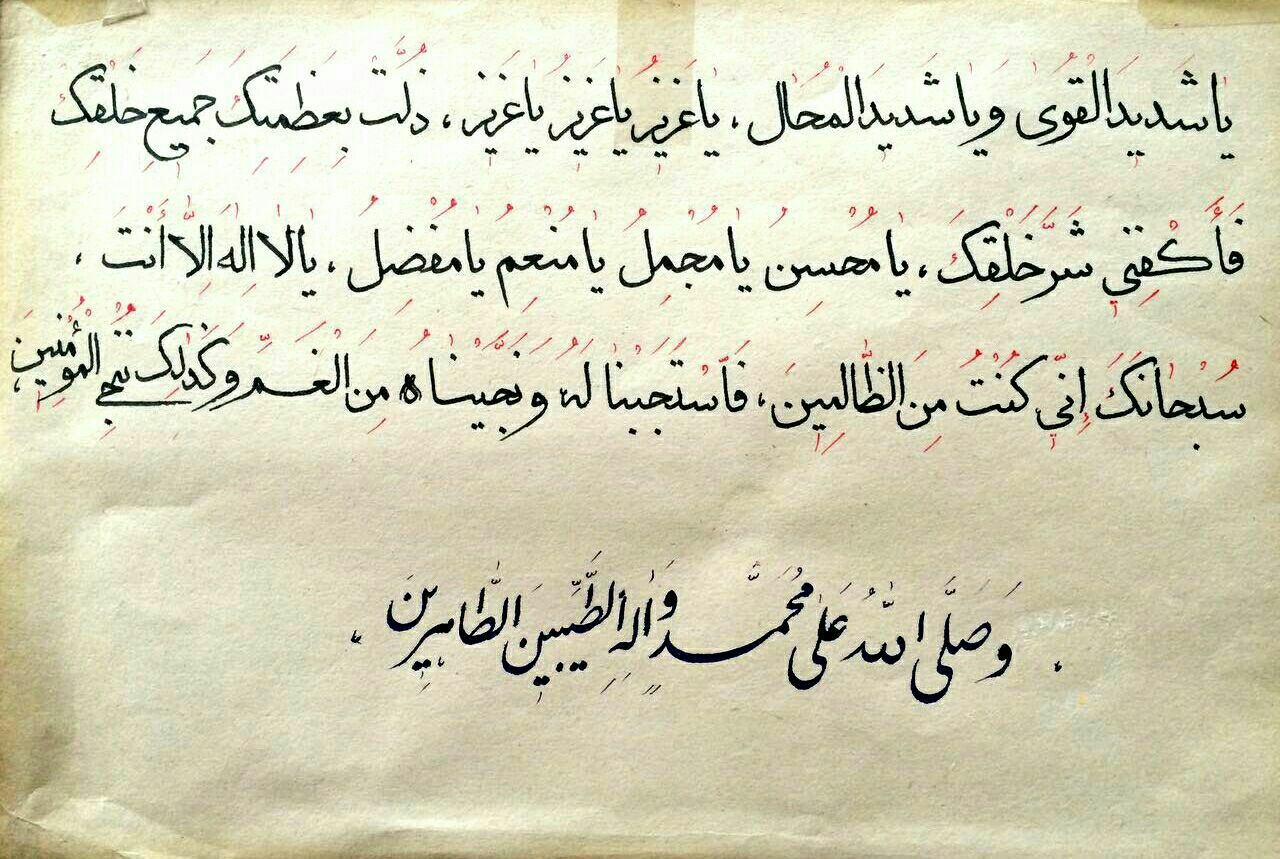 يا شَديدَ الْقُوىٰ وَيا شَديدَ الْمِحٰالِ ، يا عَزيزُ يا عَزيزُ يا عَزيزُ ، ذَلَّتْ بِعَظَمَتِكَ جَميعُ خَلْقِكَ
فَأَكْفِني شَرَّ خَلْقِكَ ، يا مُحْسِنُ يا مُجْمِلُ يا مُنْعِمُ يا مُفْضِلُ ، يا لا اِلهَ اِلّا أَنْتَ ،
سُبْحانَكَ إِنّي كُنْتُ مِنَ الظّالِمينَ ، فَاسْتَجَبْنا لَهُ وَنَجَّيْناهُ مِنَ الْغَمِّ وَكَذٰلِكَ نُنْجِي الْمُؤْمِنينَ ،
. وَصَلَّى اللّٰهُ عَلىٰ مُحَمَّدٍ وَآلِهِ الطَّيِّبينَ الطّاهِرينَ .